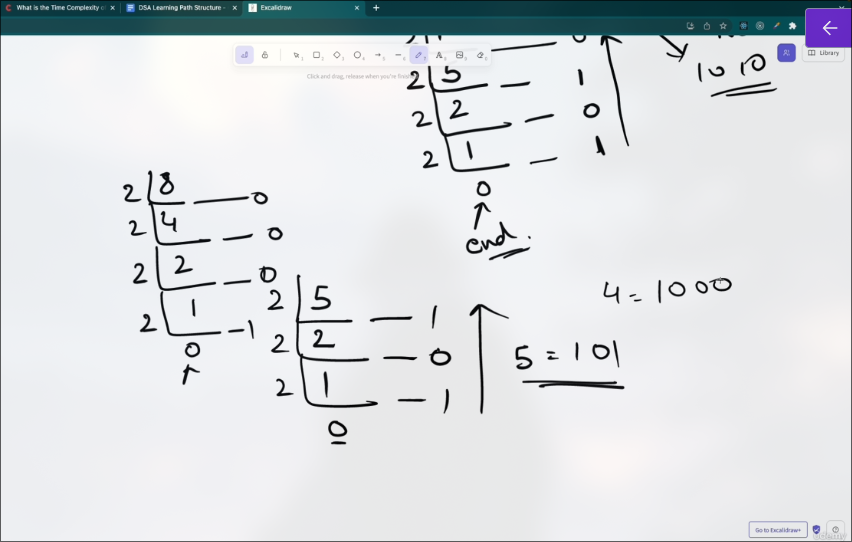 What is the Time Complexity of
DSA Learning Path Structure -
Excalidraw
Library
Click and drag, release when you're finished
0
2 5 — 1
1010
2 2 — 0
2 1 — 1
0
end.
2 8 — 0
2 4 — 0
2 2 — 0
2 1 — 1
0
4 = 1000
2 5 — 1
2 2 — 0
2 1 — 1
0
5 = 101
Go to Excalidraw+